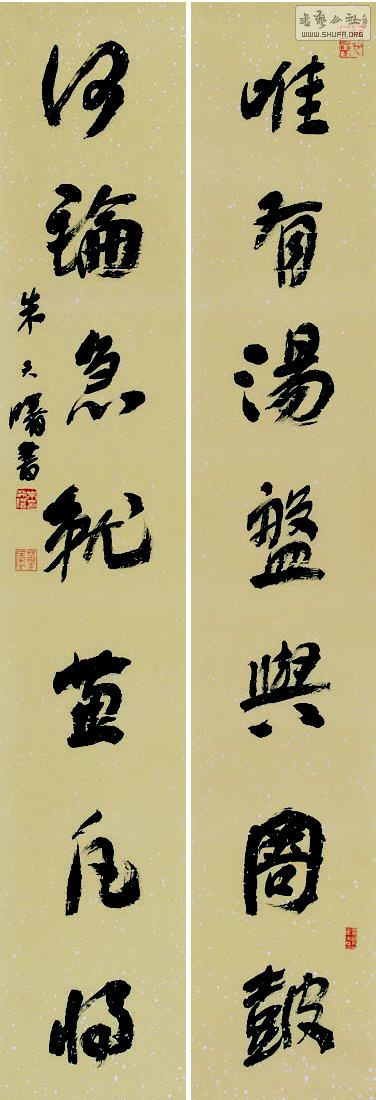 唯有湯盤與周鼓
何論急就並凡將
朱天曙書
书艺公社
WWW.SHUFA.ORG